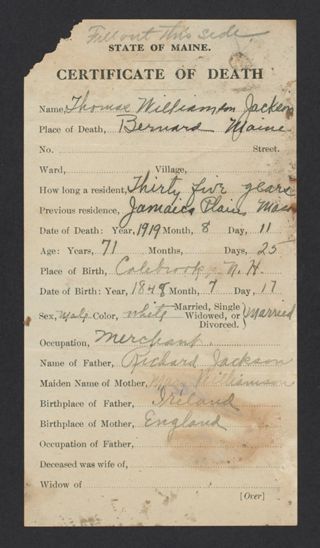 Fill out this side
STATE OF MAINE.
CERTIFICATE OF DEATH
Name, Thomas Williamson Jackson
Place of Death, Bernard Maine
No. Street.
Ward, Village,
How long a resident, Thirty five years
Previous residence, Jamaica Plain, Mass
Date of Death: Year, 1919 Month, 8 Day, 11
Age: Years, 71 Months, Days, 25
Place of Birth, Colebrook, N. H.
Date of Birth: Year, 1848 Month, 7 Day, 17
Sex, male Color, white Married, Single Widowed, or Divorced. } Married
Occupation, Merchant.
Name of Father, Richard Jackson
Maiden Name of Mother, Williamson
Birthplace of Father, Ireland
Birthplace of Mother, England
Occupation of Father,
Deceased was wife of,
Widow of
[Over]